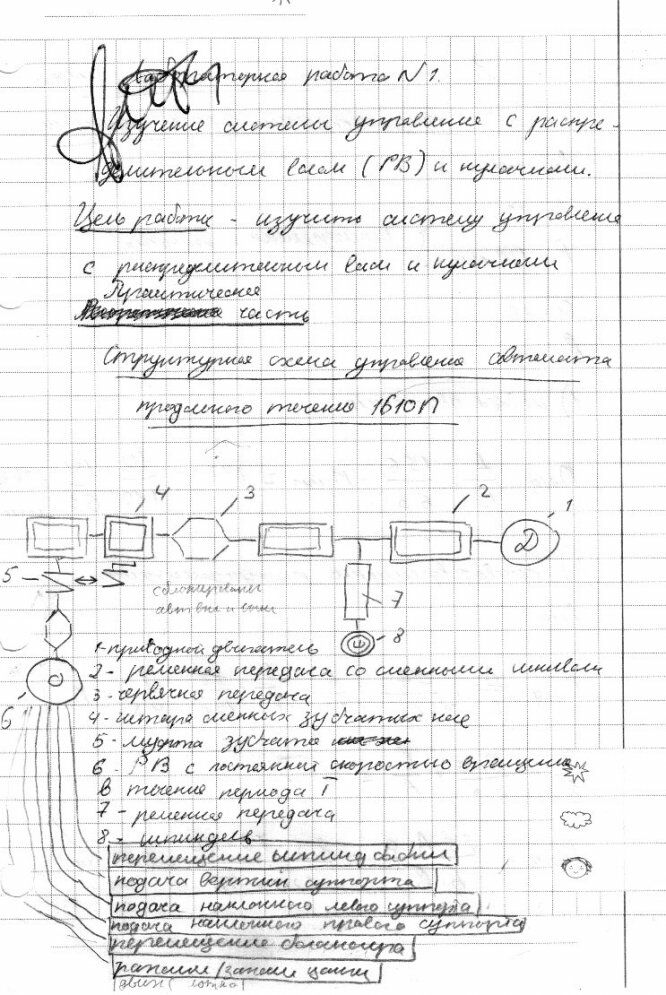 Лабораторная работа N 1.
Изучение системы управление с распре-
делительным валом (РВ) и кулачками.
Цель работы - изучить систему управления
с распределительным валом и кулачками
Практическая
часть
Структурная схема управления автомата
продольного точения 1610П
4 3 2 1
Д
5
7
сблокированы
8
1-приводной двигатель
2- ременная передача со сменными шкивами
3- червячная передача
6
4- гитара сменных зубчатых кол
5- муфта зубчатая
6. РВ с постоянной скоростью вращения
в течение периода T
7 - ременная передача
8 - шпиндель
перемещение шпинд бабки
подача вертик суппорта
подача наклонного левого суппорта
подача наклонного правого суппорта
перемещение балансира
разжим/зажим цанги